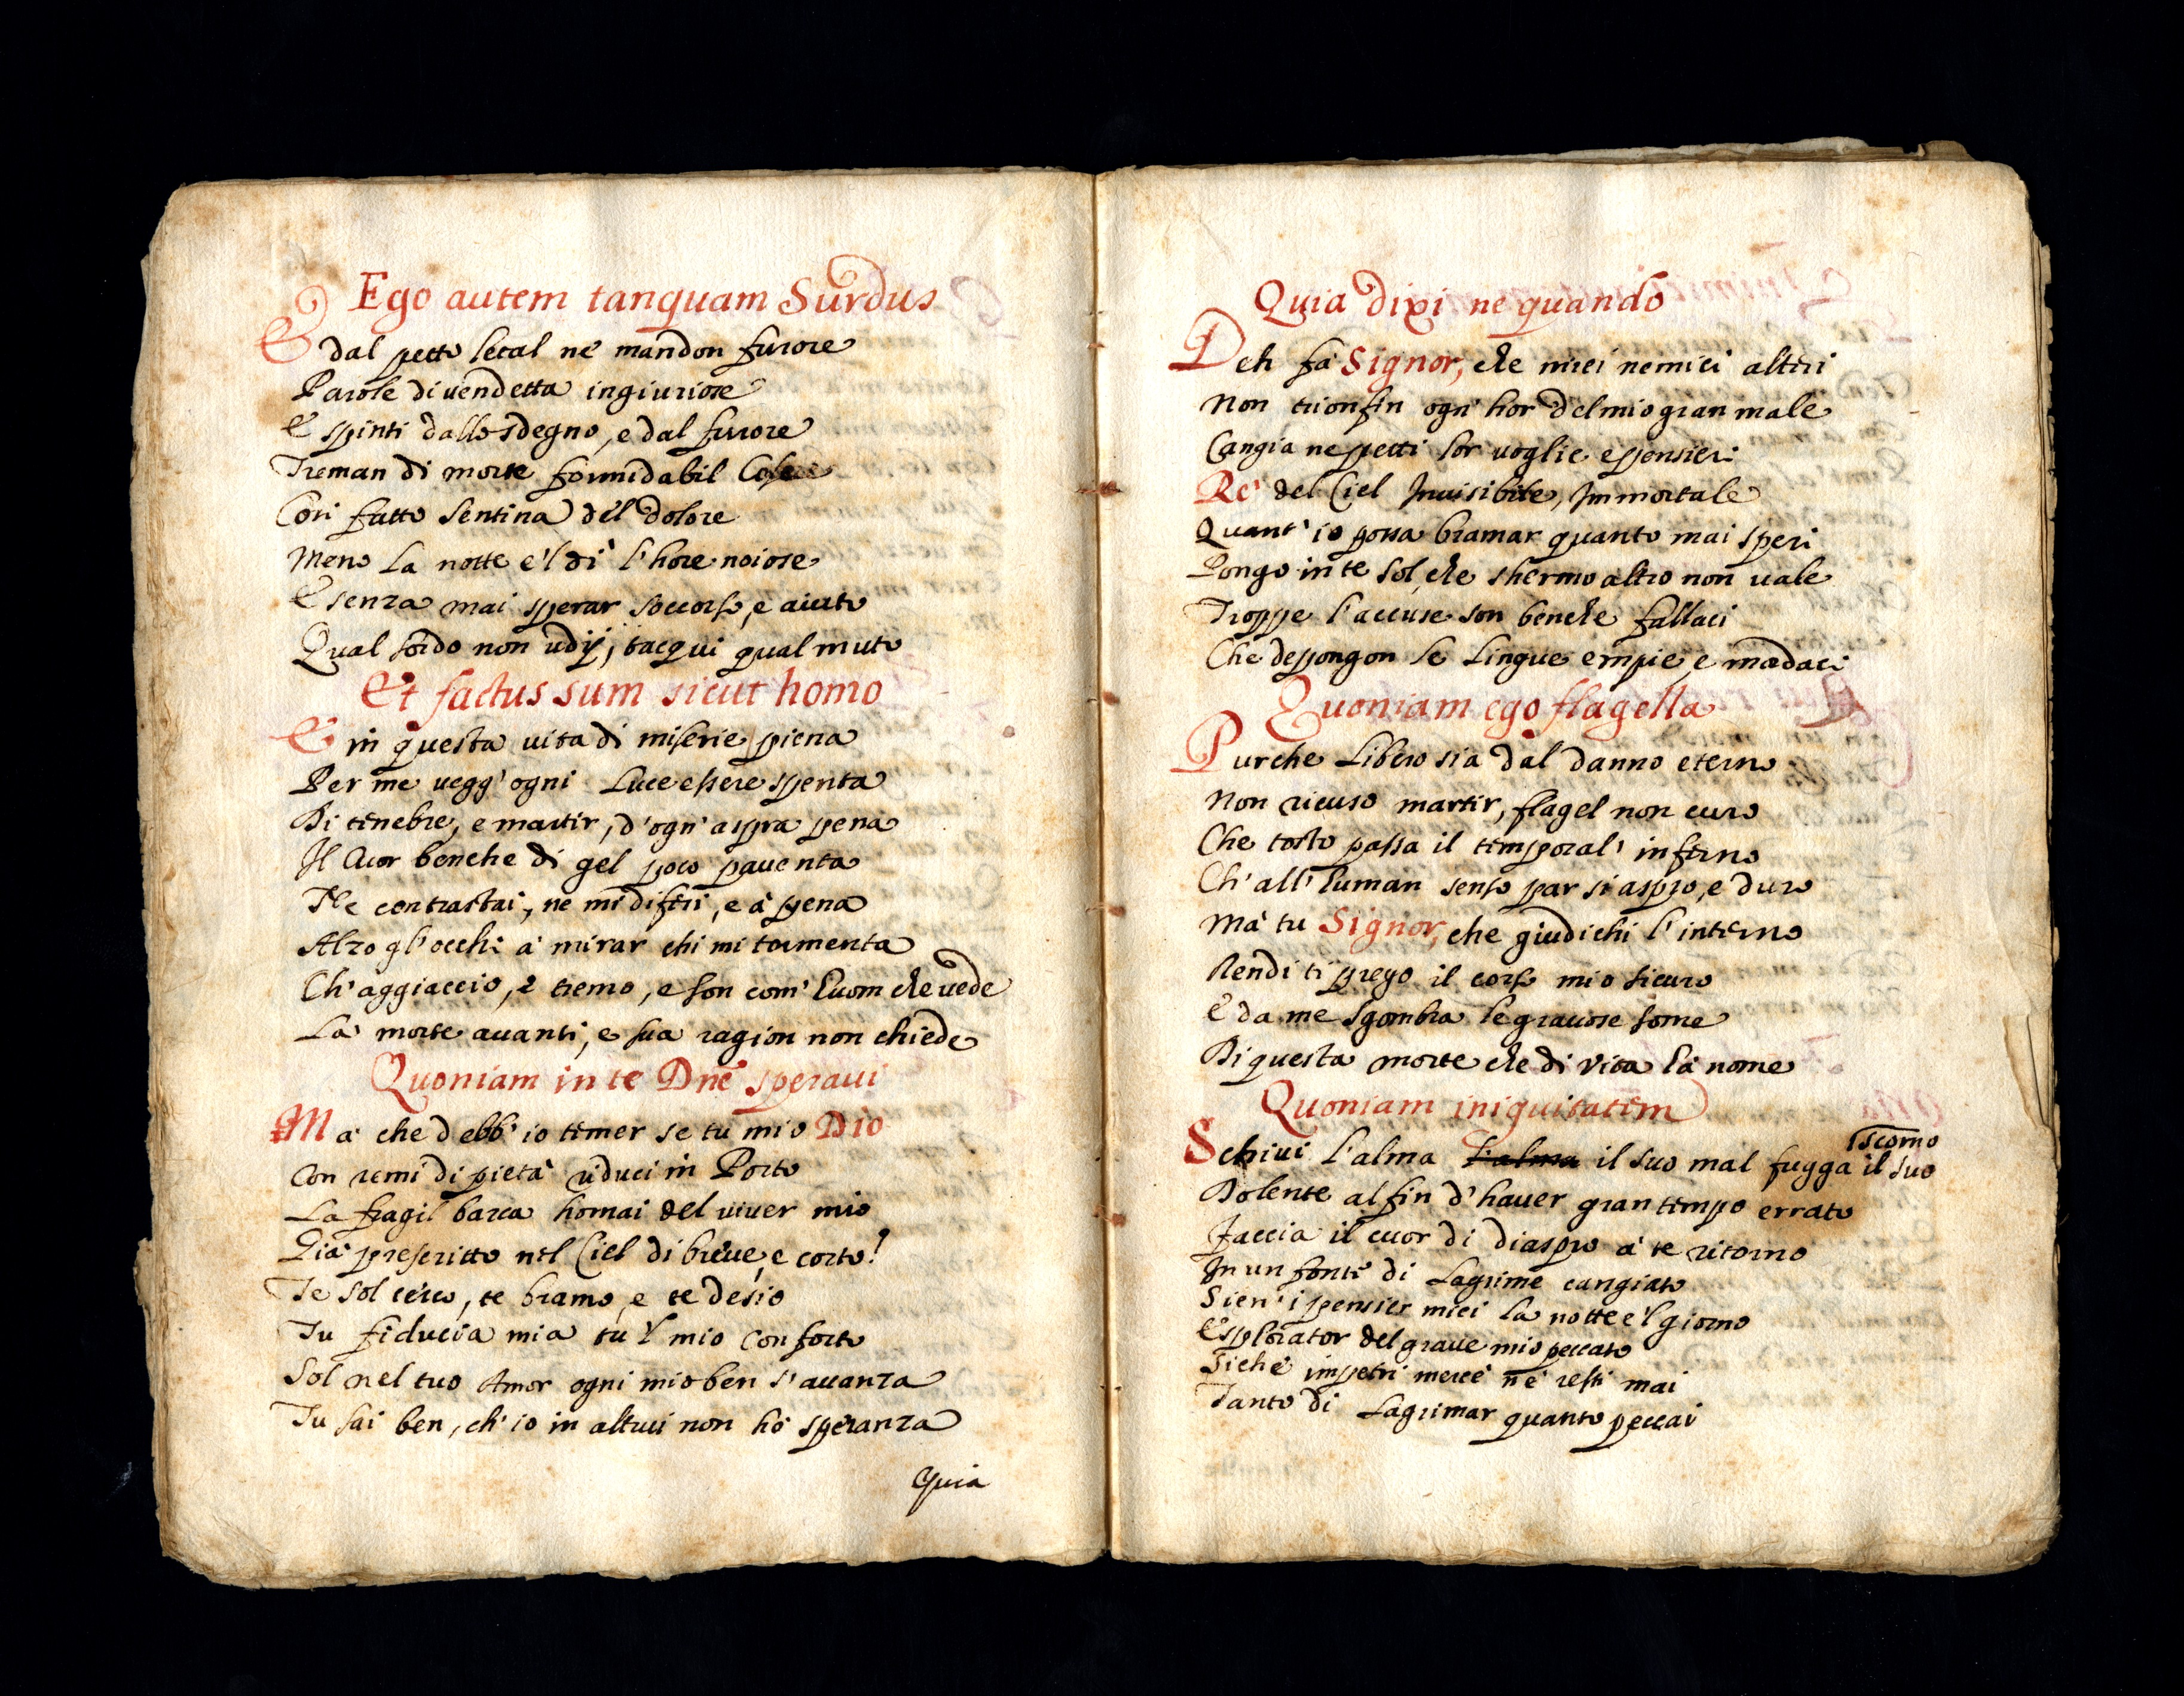 Ego autem tanquam Surdus
E dal petto letal ne mandon fuore
Parole di vendetta ingiuriose
E spinti dallo sdegno, e dal furore
Treman di morte formidabil Cose
Cosi fatto sentina del dolore
Meno la notte e'l di l'hore noiose
E senza mai sperar soccorso, e aiuto
Qual sordo non udij, tacqui qual muto
Et factus sum sicut homo
E in questa vita di miserie piena
Per me vegg' ogni Luce essere spenta
Di tenebre, e martir, d'ogn' aspra pena
Il Cuor benche di gel poco paventa
Ne contrastai, ne mi difesi, e à pena
Alzo gl'occhi à mirar chi mi tormenta
Ch'aggiaccio, e tremo, e son com' huom che vede
La morte avanti, e sua ragion non chiede
Quoniam in te Dne speraui
Ma che debb' io temer se tu mio Dio
Con remi di pietà riduci in Porto
La fragil barca homai del viver mio
Già prescritto nel Ciel di breve, e corto!
Te sol cerco, te bramo, e te desio
Tu fiducia mia tu 'l mio conforto
Sol nel tuo Amor ogni mio ben s'avanza
Tu sai ben, ch'io in altrui non hò speranza
Quia
Quia dixi ne quando
Deh fà Signor, che miei nemici alteri
Non trionfin ogn' hor del mio gran male
Cangia ne petti lor voglie e pensieri
Rè del Ciel Invisibile, Immortale
Quant' io possa bramar quanto mai speri
Pongo in te sol, che shermo altro non vale
Troppe l'accuse son benche fallaci
Che depongon le Lingue empie, e mẽdaci
Quoniam ego flagella
Purche Libero sia dal danno eterno
Non ricuso martir, flagel non curo
Che tosto passa il temporal' inferno
Ch' all' human senso par si aspro, e duro
Mà tu Signor, che giudichi l'interno
Rendi ti prego il corso mio sicuro
E da me sgombra le gravose some
Di questa morte che di vita hà nome
Quoniam iniquitatem
Schivi L'alma l'alma il suo mal fugga il suo scorno
Dolente al fin d'haver gran tempo errato
Faccia il cuor di diaspro à te ritorno
In un fonte di Lagrime cangiato
Sien' i pensier miei la notte e'l giorno
Esplorator del grave mio peccato
Siche impetri mercè ne resti mai
Tanto di Lagrimar quanto peccai